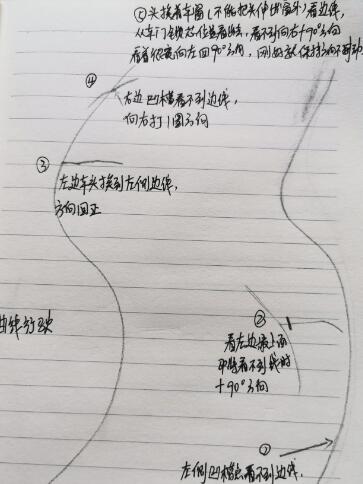 ⑤头挨着车窗(不能把头伸出窗外)看边线,
从车门锁芯位置看线,看不到向右+90°方向
看着很宽向左回90°方向,刚好就保持方向不动
④
右边凹槽看不到边线,
向右打1圈方向
③
左边车头挨到左侧边线,
方向回正
曲线行驶
②
看左边最上面
即将看不到线时
+90°方向
①
左侧凹槽点看不到边线,